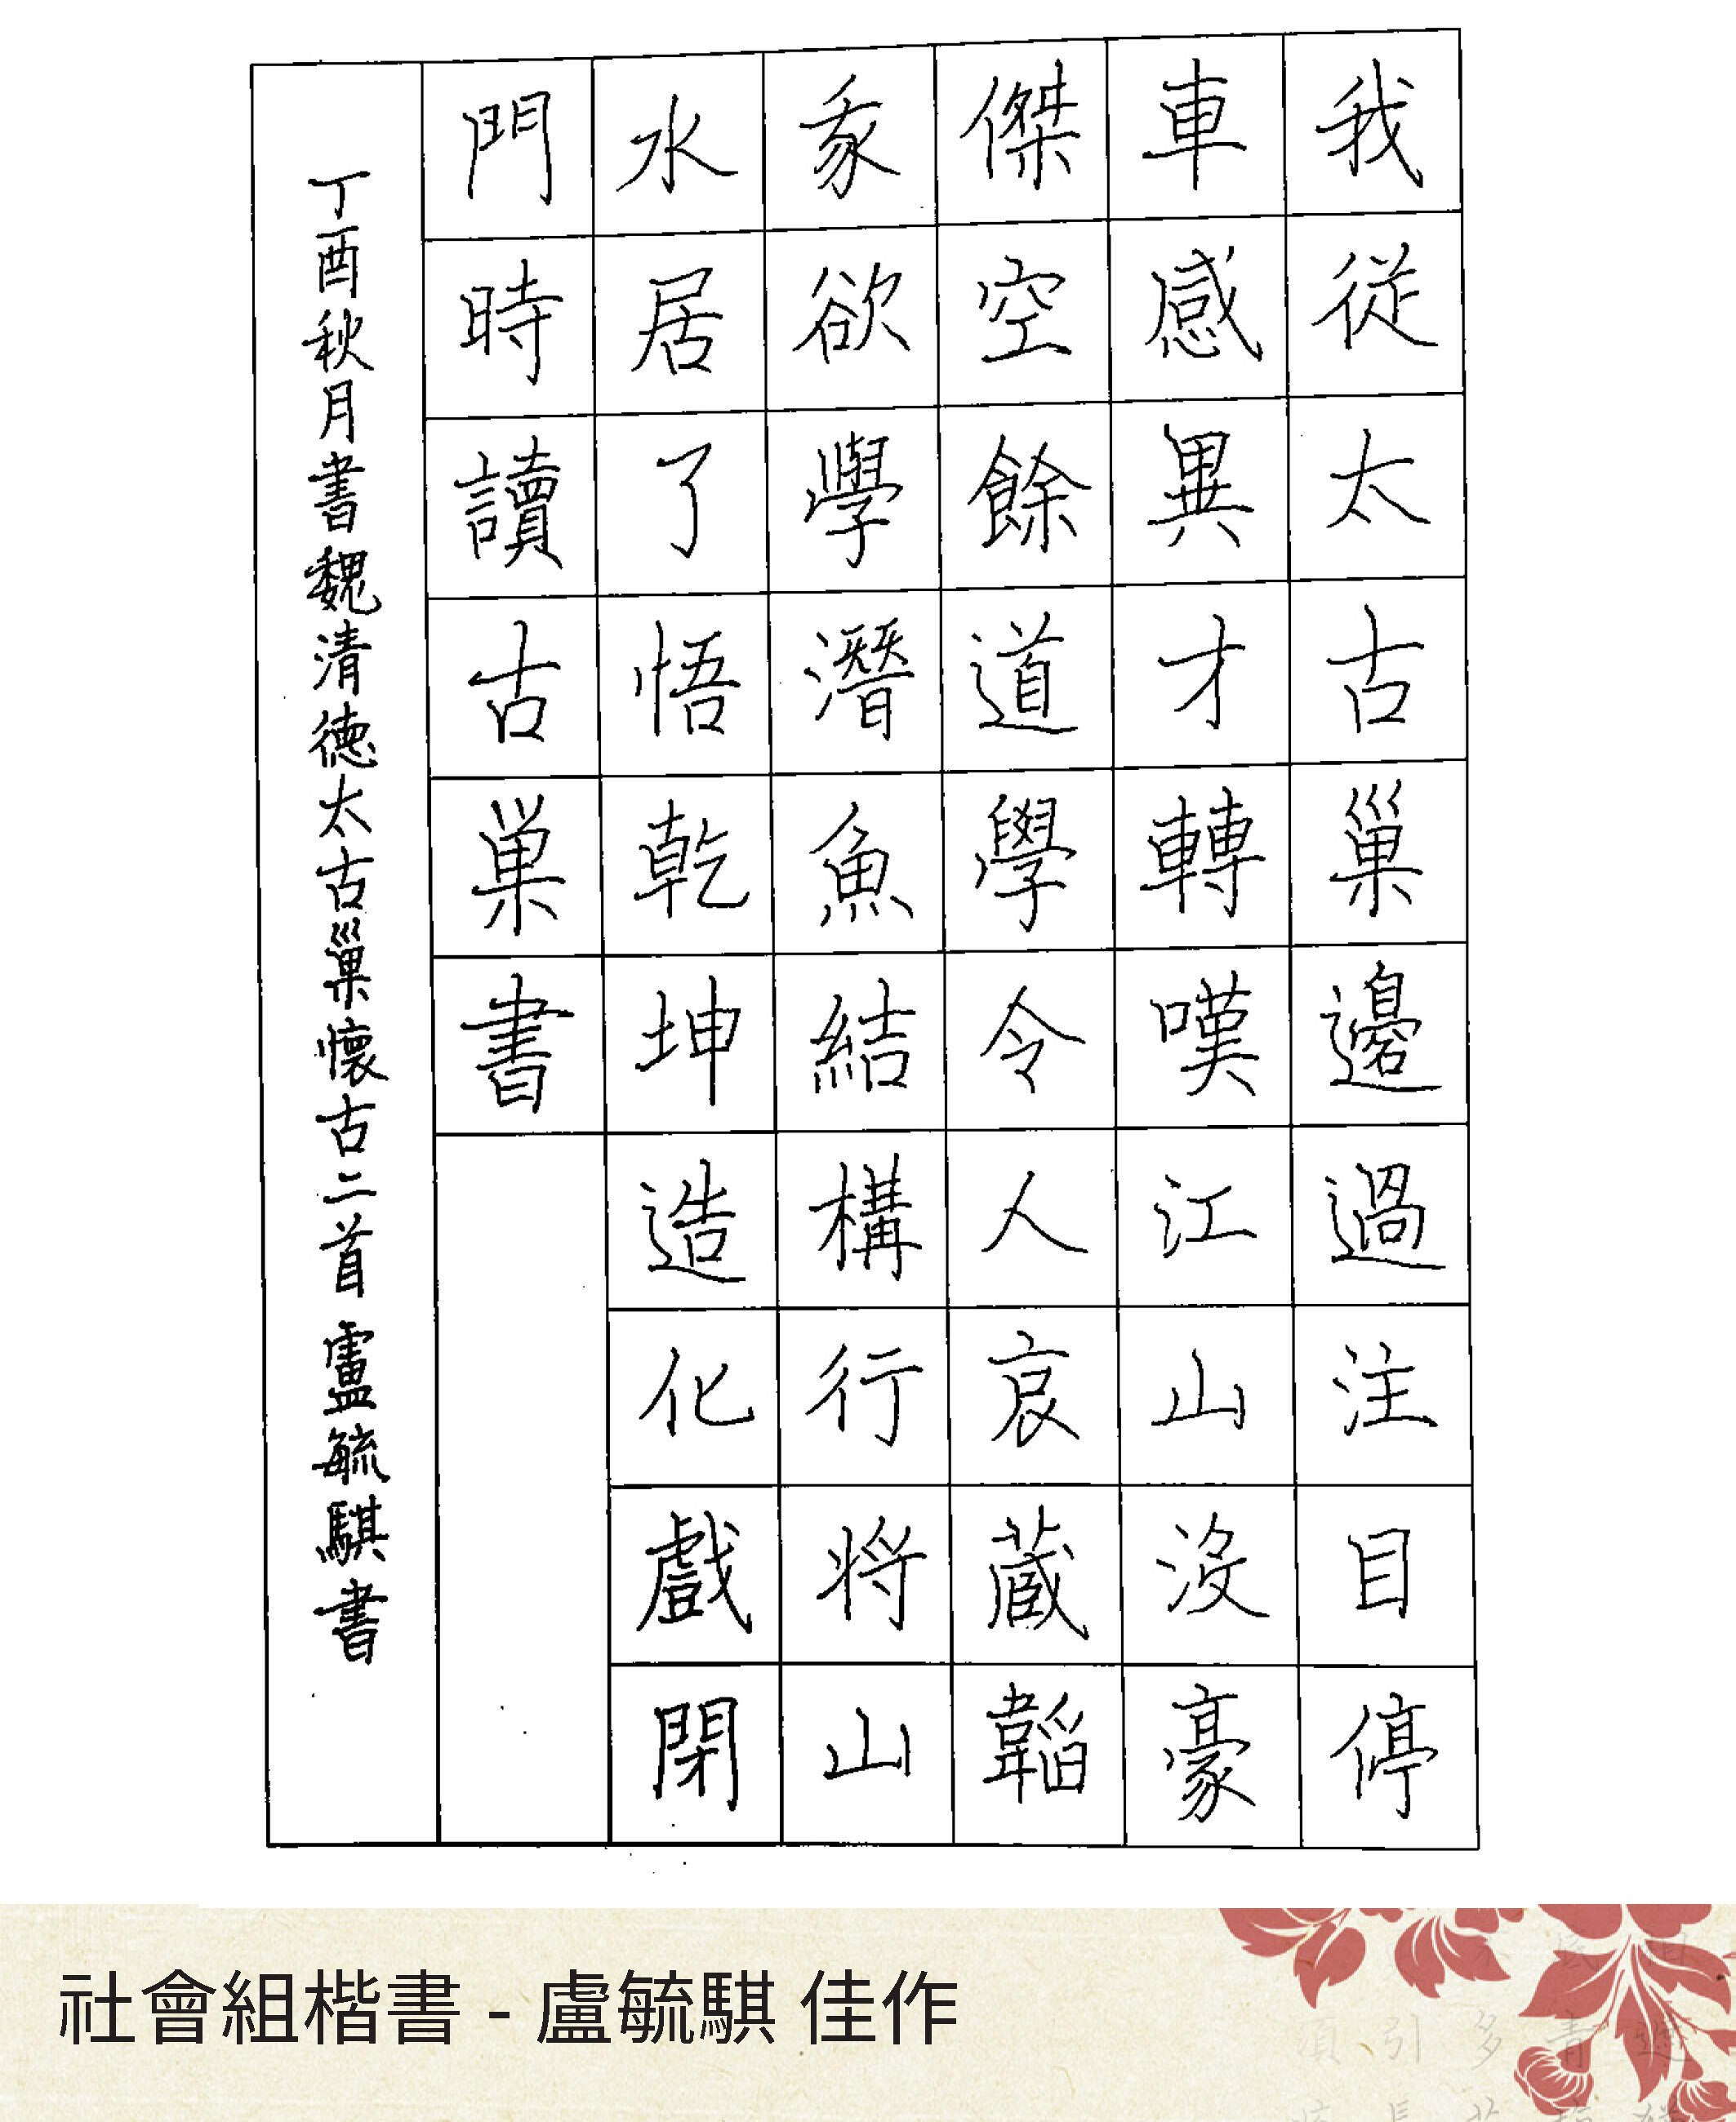 我從太古巢邊過注目停
車感異才轉嘆江山沒豪
傑空餘道學令人哀蔵韜
家欲學潛魚結構行將山
水居了悟乾坤造化戲閉
門時讀古巢書
丁酉秋月書魏清德太古巢懷古二首 盧毓騏書
社會組楷書 - 盧毓騏 佳作